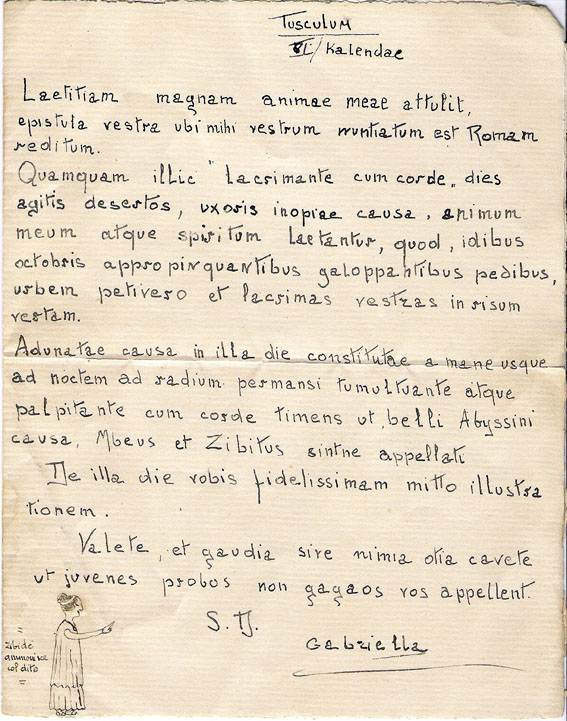 Tusculum
VI/Kalendae
Laetitiam magnam animae meae attulit,
epistula vestra ubi mihi vestrum nuntiatum est Romam
reditum.
Quamquam illic "lacrimante cum corde" dies
agitis desertos, uxoris inopiae causa, animum
meum atque spiritum laetantur, quod, idibus
octobris appropinquantibus galoppantibus pedibus,
urbem petivero et lacrimas vestras in risum
vertam.
Adunatae causa in illa die constitutae a mane usque
ad noctem ad radium permansi tumultuante atque
palpitante cum corde timens ut, belli Abyssini
causa, Mbeus et Zibitus sintne appellati
De illa die vobis fidelissimam mitto illustra
tionem.
Valete, et gaudia sive nimia otia cavete
ut juvenes probos non gagaos vos appellent.
S. D.
Gabriella
zibide
ammonisce
col dito